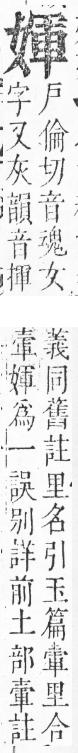 媈
戶倫切音魂女
字又灰韻音揮
義同舊註里名引玉篇里合
媈為一誤別詳前土部註